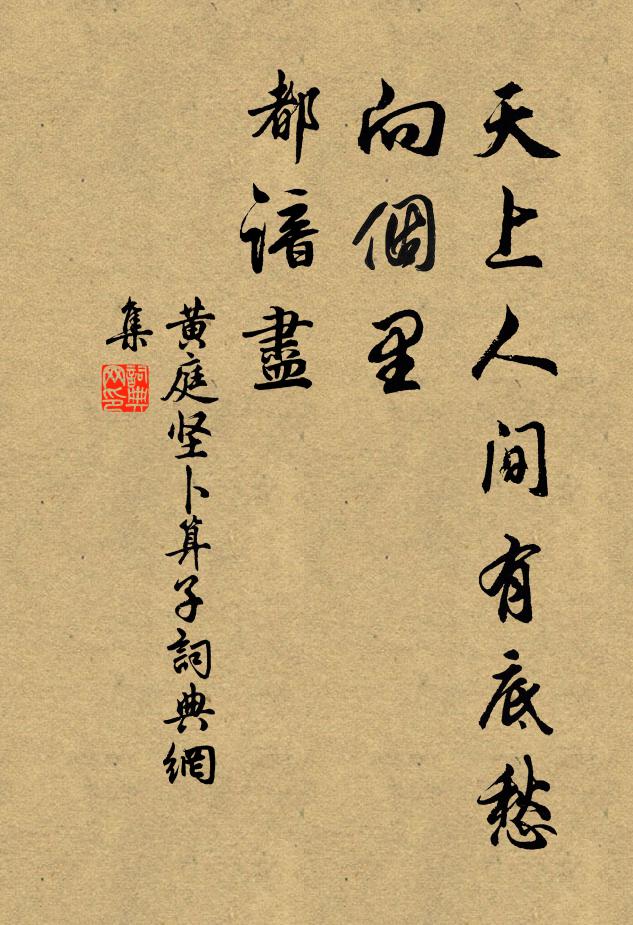 天上人间有底愁
向個里
都谙盡
黄庭坚卜算子詞典網
集
詞典
网印